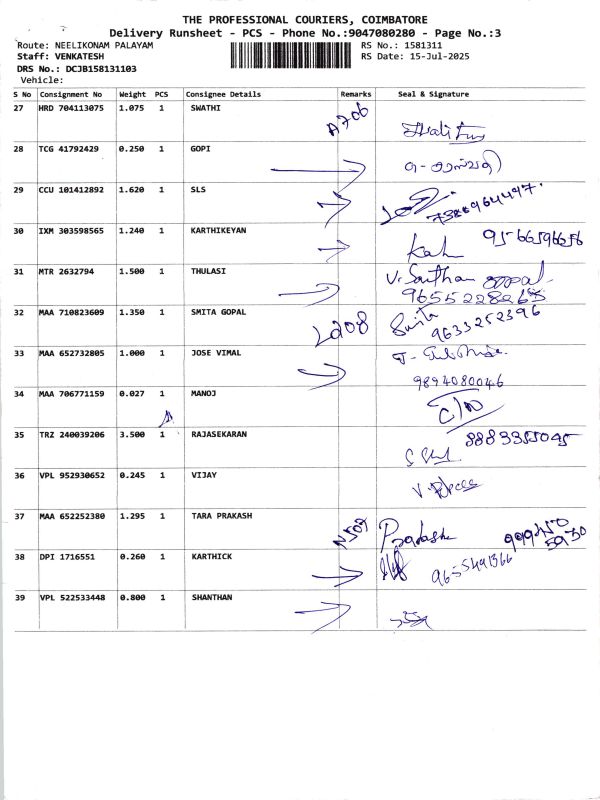 THE PROFESSIONAL COURIERS, COIMBATORE
Delivery Runsheet - PCS - Phone No.:9047080280 - Page No.:3
Route: NEELIKONAM PALAYAM RS No.: 1581311
Staff: VENKATESH RS Date: 15-Jul-2025
DRS No.: DCJB158131103
Vehicle:
S No Consignment No Weight PCS Consignee Details Remarks Seal & Signature
27 HRD 704113075 1.075 1 SWATHI A706
28 TCG 41792429 0.250 1 GOPI
29 CCU 101412892 1.620 1 SLS
30 IXM 303598565 1.240 1 KARTHIKEYAN 9566596656
31 MTR 2632794 1.500 1 THULASI
32 MAA 710823609 1.350 1 SMITA GOPAL L208 Smita
9633252396
33 MAA 652732805 1.000 1 JOSE VIMAL
9894080046
34 MAA 706771159 0.027 1 MANOJ
35 TRZ 240039206 3.500 1 RAJASEKARAN 8883355045
36 VPL 952930652 0.245 1 VIJAY
37 MAA 652252380 1.295 1 TARA PRAKASH Pradasha
38 DPI 1716551 0.260 1 KARTHICK 9655491366
39 VPL 522533448 0.800 1 SHANTHAN